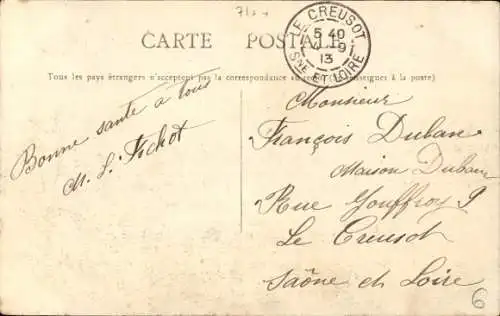 71
CARTE POSTALE
LE CREUSOT
5 40
4-9
13
Sne ET LOIRE
Tous les pays étrangers n'acceptent pas la correspondance au (renseignements à la poste)
Bonne santé à tous
M. L. Fichot
Monsieur
François Duban
Maison Duban
Rue Jouffroy 9
Le Creusot
Saône et Loire
6